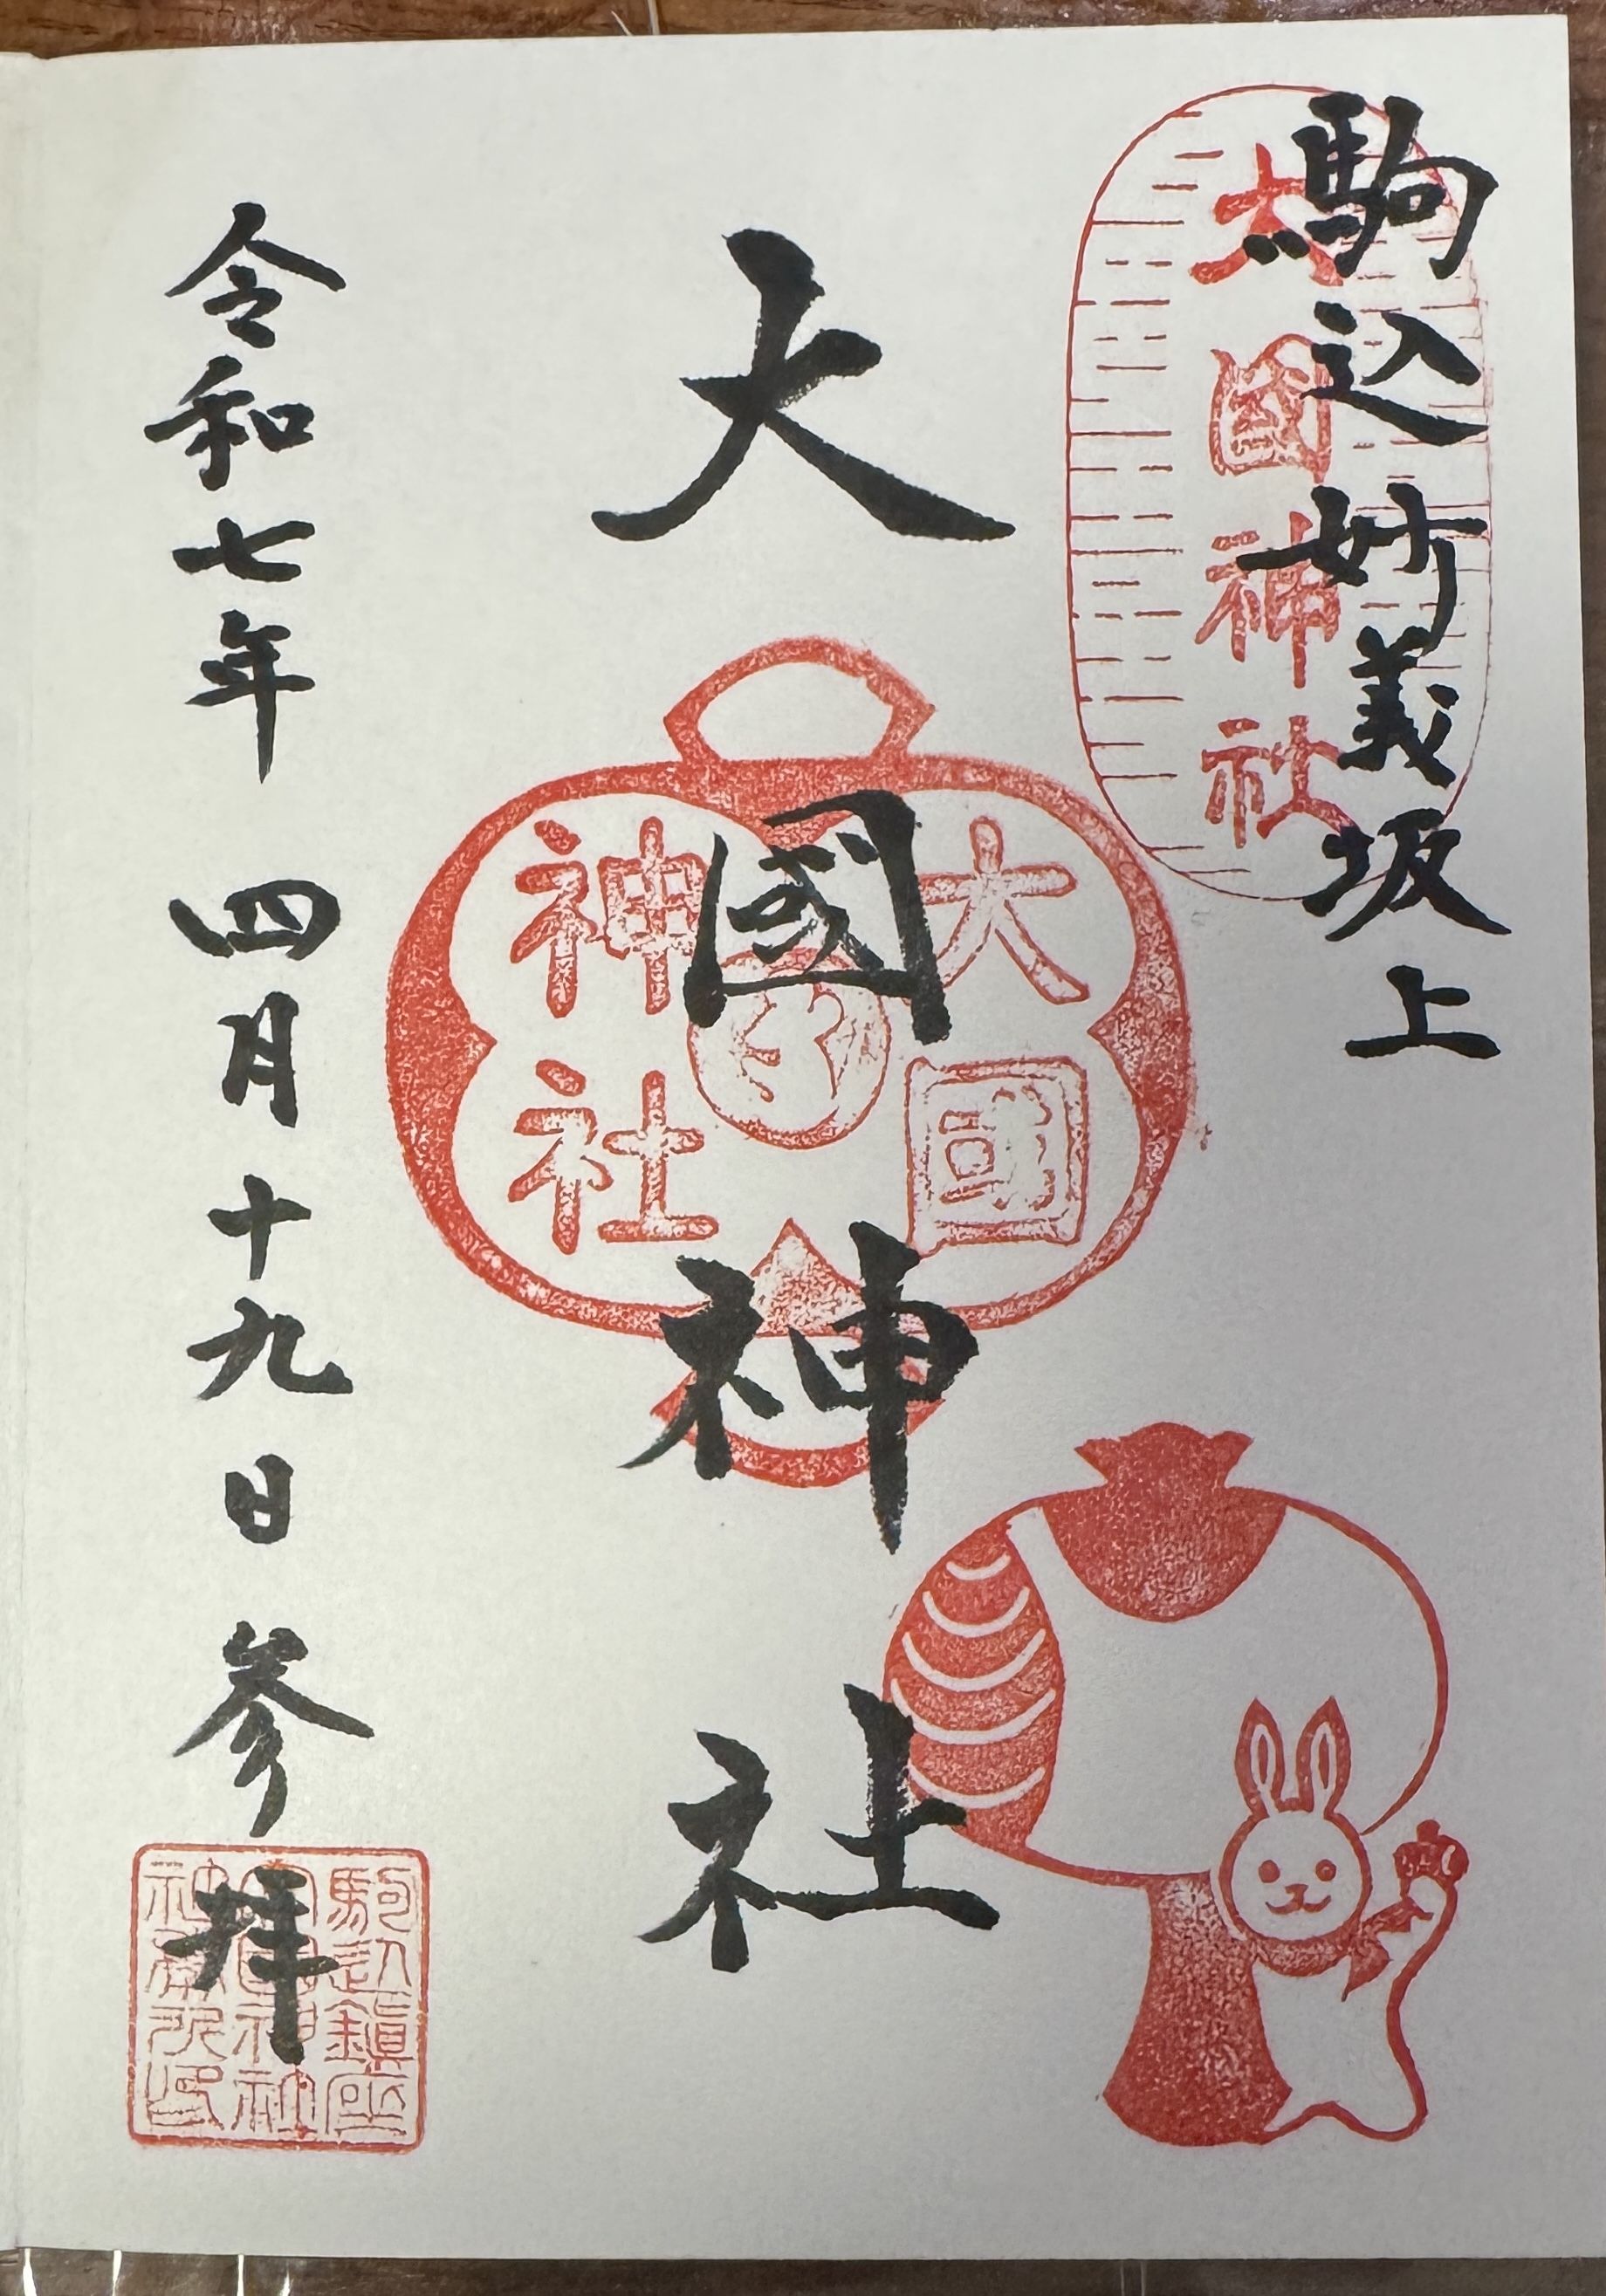 駒込妙義坂上
大國神社
大國神社
大國神社
令和七年 四月十九日 参拝
駒込鎮座
大國神社
社務所印